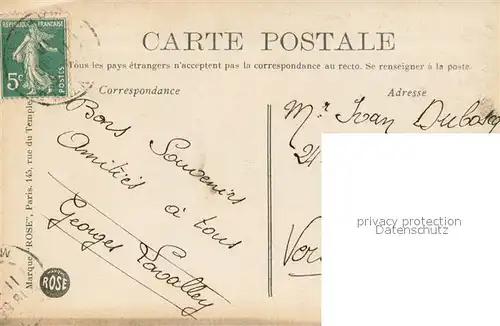 RÉPUBLIQUE FRANÇAISE
5c
POSTES
CARTE POSTALE
Tous les pays étrangers n'acceptent pas la correspondance au recto. Se renseigner à la poste.
Correspondance
Adresse
Bons Souvenirs
Amitiés à tous
Georges Lavalley
Mr. Ivan
24
Ver
privacy protection
Datenschutz
Marque "ROSE", Paris. 145, rue du Temple
ROSE